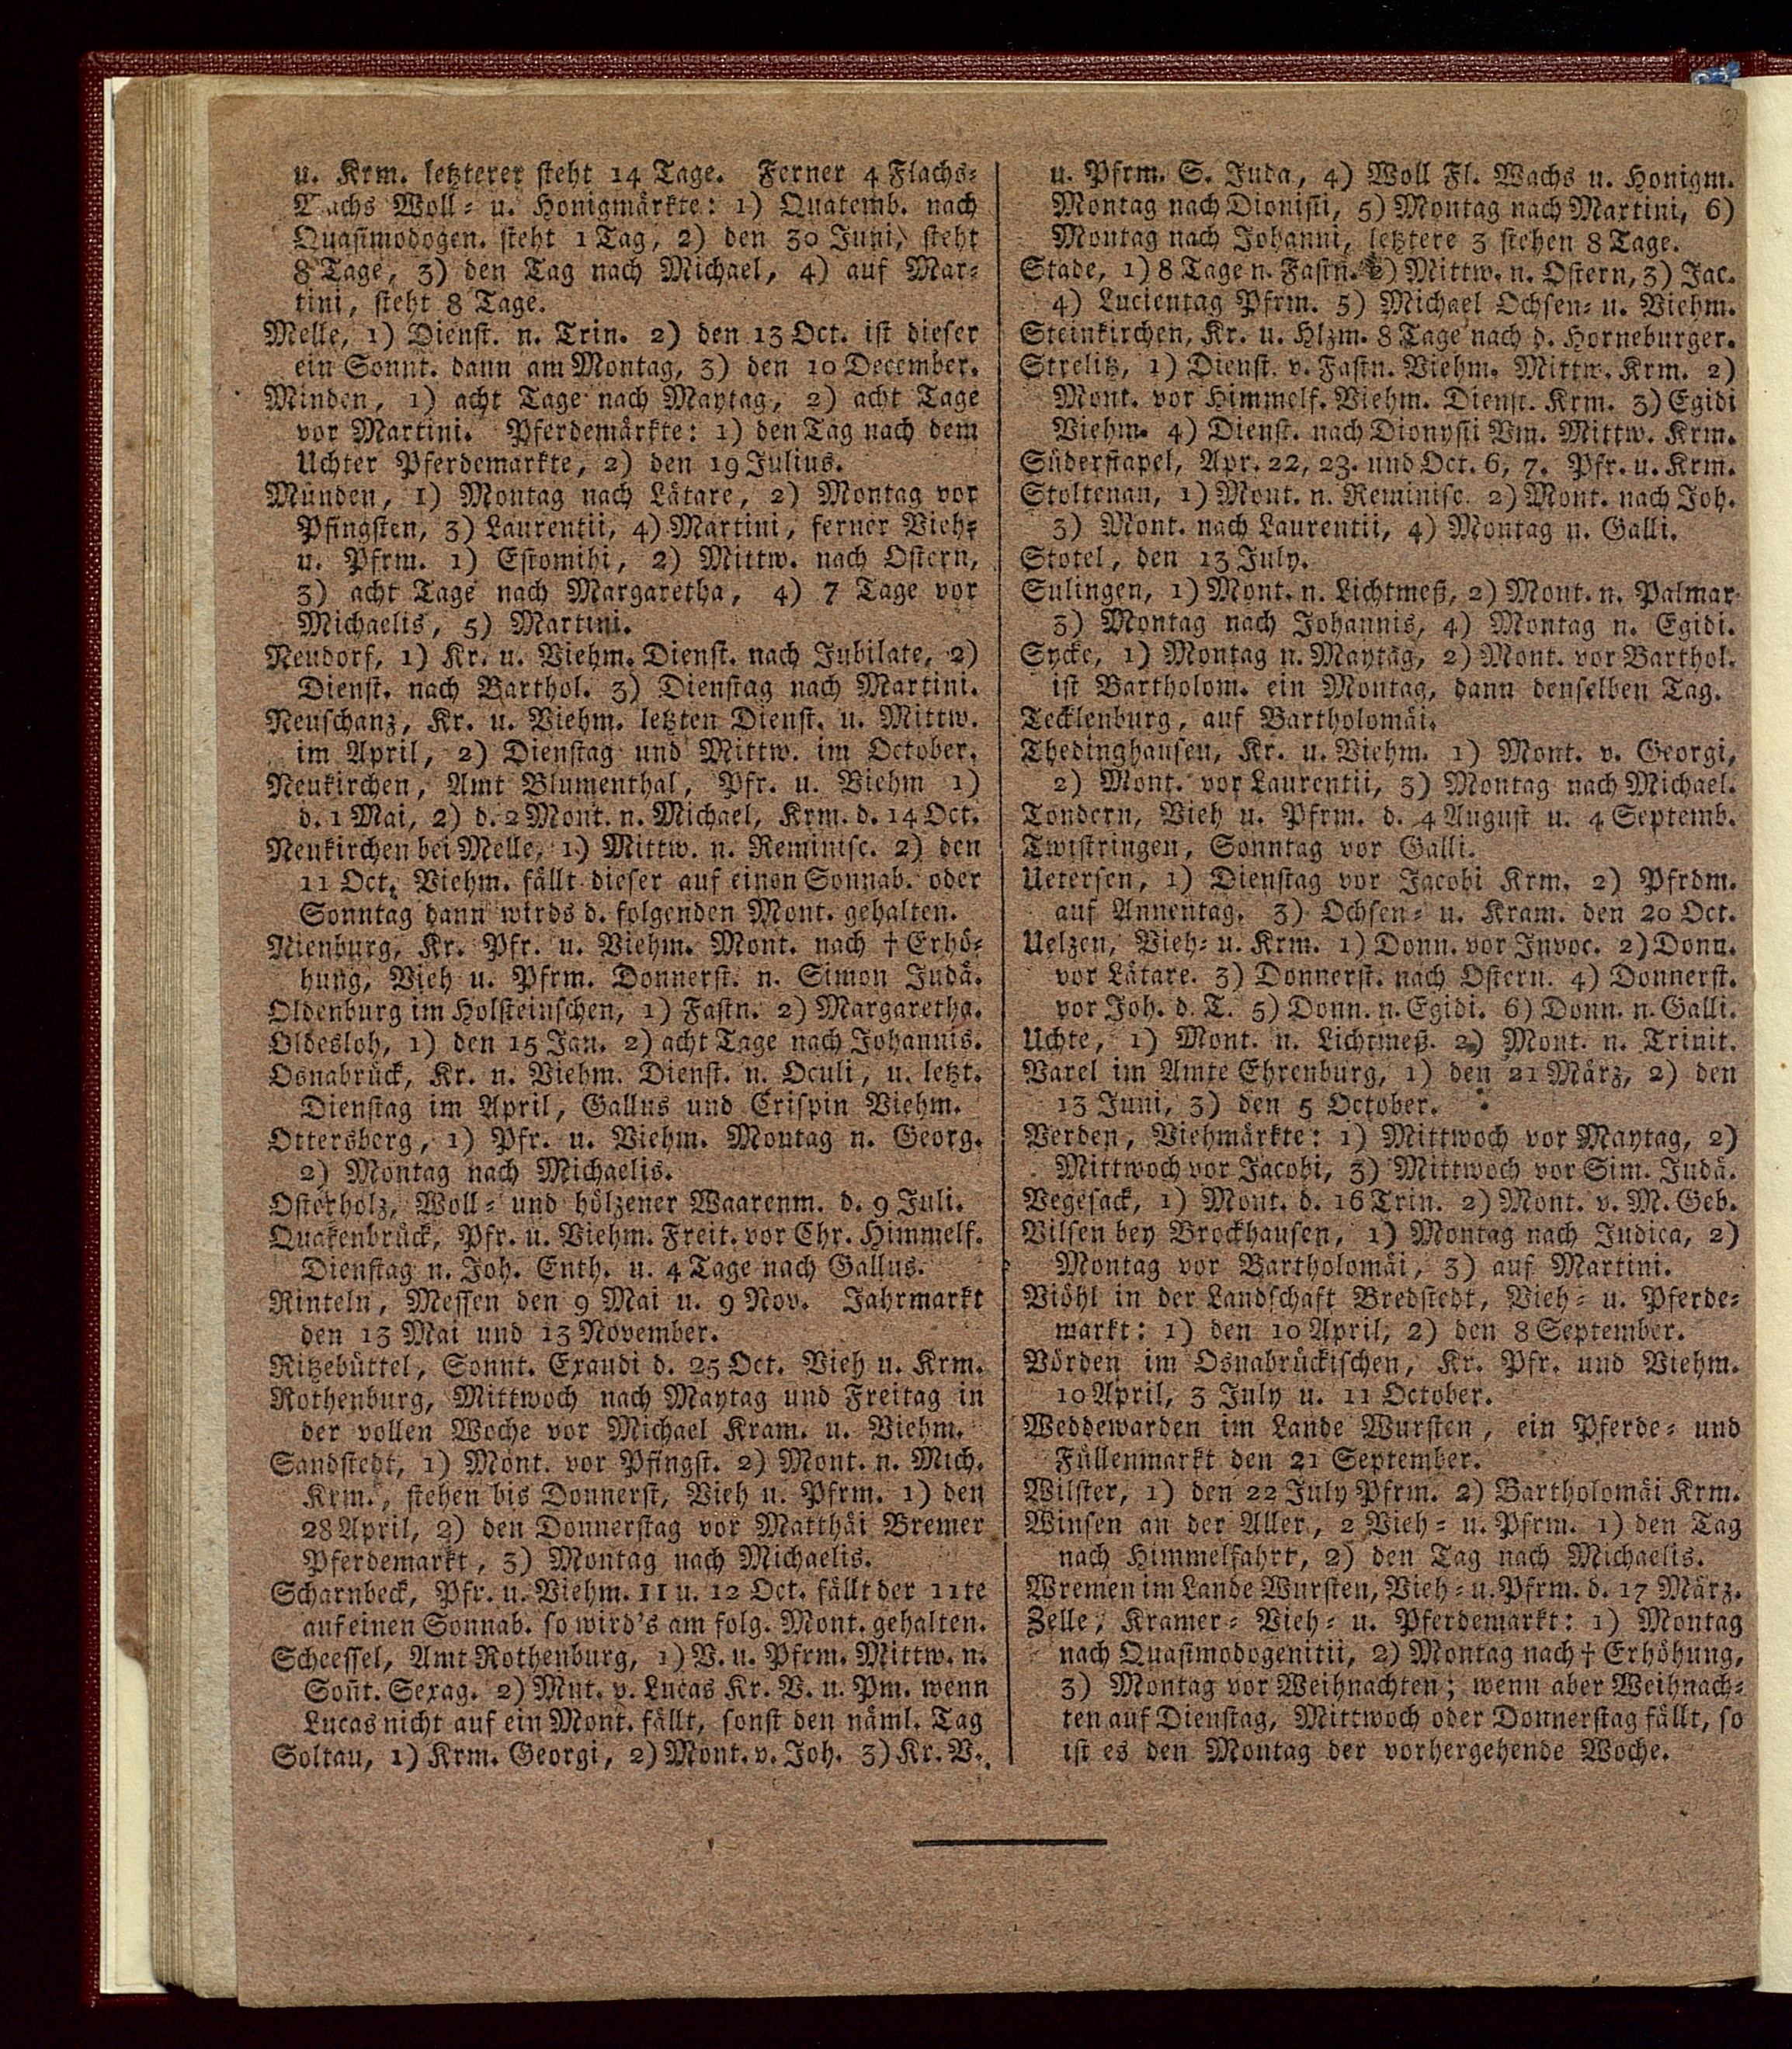 u. Krm. letzterer steht 14 Tage. Ferner 4 Flachs-
Wachs Woll- u. Honigmärkte: 1) Quatemb. nach
Quasimodogen. steht 1 Tag, 2) den 30 Juni, steht
8 Tage, 3) den Tag nach Michael, 4) auf Mar-
tini, steht 8 Tage.
Melle, 1) Dienst. n. Trin. 2) den 13 Oct. ist dieser
ein Sonnt. dann am Montag, 3) den 10 December.
Minden, 1) acht Tage nach Maytag, 2) acht Tage
vor Martini. Pferdemärkte: 1) den Tag nach dem
Uchter Pferdemarkte, 2) den 19 Julius.
Münden, 1) Montag nach Lätare, 2) Montag vor
Pfingsten, 3) Laurentii, 4) Martini, ferner Vieh-
u. Pfrm. 1) Estomihi, 2) Mittw. nach Ostern,
3) acht Tage nach Margaretha, 4) 7 Tage vor
Michaelis, 5) Martini.
Neudorf, 1) Kr. u. Viehm. Dienst. nach Jubilate, 2)
Dienst. nach Barthol. 3) Dienstag nach Martini.
Neuschanz, Kr. u. Viehm. letzten Dienst. u. Mittw.
im April, 2) Dienstag und Mittw. im October.
Neukirchen, Amt Blumenthal, Pfr. u. Viehm 1)
d. 1 Mai, 2) d. 2 Mont. n. Michael, Krm. d. 14 Oct.
Neukirchen bei Melle, 1) Mittw. n. Reminisc. 2) den
11 Oct. Viehm. fällt dieser auf einen Sonnab. oder
Sonntag dann wirds d. folgenden Mont. gehalten.
Nienburg, Kr. Pfr. u. Viehm. Mont. nach † Erhö-
hung, Vieh u. Pfrm. Donnerst. n. Simon Judä.
Oldenburg im Holsteinschen, 1) Fastn. 2) Margaretha.
Oldesloh, 1) den 15 Jan. 2) acht Tage nach Johannis.
Osnabrück, Kr. u. Viehm. Dienst. n. Oculi, u. letzt.
Dienstag im April, Gallus und Crispin Viehm.
Ottersberg, 1) Pfr. u. Viehm. Montag n. Georg.
2) Montag nach Michaelis.
Osterholz, Woll- und hölzener Waarenm. d. 9 Juli.
Quakenbrück, Pfr. u. Viehm. Freit. vor Chr. Himmelf.
Dienstag n. Joh. Enth. u. 4 Tage nach Gallus.
Rinteln, Messen den 9 Mai u. 9 Nov. Jahrmarkt
den 13 Mai und 13 November.
Ritzebüttel, Sonnt. Exaudi d. 25 Oct. Vieh u. Krm.
Rothenburg, Mittwoch nach Maytag und Freitag in
der vollen Woche vor Michael Kram. u. Viehm.
Sandstedt, 1) Mont. vor Pfingst. 2) Mont. n. Mich.
Krm., stehen bis Donnerst, Vieh u. Pfrm. 1) den
28 April, 2) den Donnerstag vor Matthäi Bremer
Pferdemarkt, 3) Montag nach Michaelis.
Scharnbeck, Pfr. u. Viehm. 11 u. 12 Oct. fällt der 11te
auf einen Sonnab. so wird's am folg. Mont. gehalten.
Scheessel, Amt Rothenburg, 1) V. u. Pfrm. Mittw. n.
Soñt. Sexag. 2) Mnt. v. Lucas Kr. V. u. Pm. wenn
Lucas nicht auf ein Mont. fällt, sonst den näml. Tag
Soltau, 1) Krm. Georgi, 2) Mont. v. Joh. 3) Kr. V.
u. Pfrm. S. Juda, 4) Woll Fl. Wachs u. Honigm.
Montag nach Dionisii, 5) Montag nach Martini, 6)
Montag nach Johanni, letztere 3 stehen 8 Tage.
Stade, 1) 8 Tage n. Fastn. 2) Mittw. n. Ostern, 3) Jac.
4) Lucientag Pfrm. 5) Michael Ochsen- u. Viehm.
Steinkirchen, Kr. u. Hlzm. 8 Tage nach d. Horneburger.
Strelitz, 1) Dienst. v. Fastn. Viehm. Mittw. Krm. 2)
Mont. vor Himmelf. Viehm. Dienst. Krm. 3) Egidi
Viehm. 4) Dienst. nach Dionysii Vm. Mittw. Krm.
Süderstapel, Apr. 22, 23. und Oct. 6, 7. Pfr. u. Krm.
Stoltenau, 1) Mont. n. Reminisc. 2) Mont. nach Joh.
3) Mont. nach Laurentii, 4) Montag n. Galli.
Stotel, den 13 July.
Sulingen, 1) Mont. n. Lichtmeß, 2) Mont. n. Palmar
3) Montag nach Johannis, 4) Montag n. Egidi.
Sycke, 1) Montag n. Maytag, 2) Mont. vor Barthol.
ist Bartholom. ein Montag, dann denselben Tag.
Tecklenburg, auf Bartholomäi.
Thedinghausen, Kr. u. Viehm. 1) Mont. v. Georgi,
2) Mont. vor Laurentii, 3) Montag nach Michael.
Tondern, Vieh u. Pfrm. d. 4 August u. 4 Septemb.
Twistringen, Sonntag vor Galli.
Uetersen, 1) Dienstag vor Jacobi Krm. 2) Pfrdm.
auf Annentag. 3) Ochsen- u. Kram. den 20 Oct.
Uelzen, Vieh- u. Krm. 1) Donn. vor Invoc. 2) Donn.
vor Lätare. 3) Donnerst. nach Ostern. 4) Donnerst.
vor Joh. d. T. 5) Donn. n. Egidi. 6) Donn. n. Galli.
Uchte, 1) Mont. n. Lichtmeß. 2) Mont. n. Trinit.
Varel im Amte Ehrenburg, 1) den 21 März, 2) den
13 Juni, 3) den 5 October.
Verden, Viehmärkte: 1) Mittwoch vor Maytag, 2)
Mittwoch vor Jacobi, 3) Mittwoch vor Sim. Judä.
Vegesack, 1) Mont. d. 16 Trin. 2) Mont. v. M. Geb.
Vilsen bey Brockhausen, 1) Montag nach Judica, 2)
Montag vor Bartholomäi, 3) auf Martini.
Viöhl in der Landschaft Bredstedt, Vieh- u. Pferde-
markt: 1) den 10 April, 2) den 8 September.
Vörden im Osnabrückischen, Kr. Pfr. und Viehm.
10 April, 3 July u. 11 October.
Weddewarden im Lande Wursten, ein Pferde- und
Füllenmarkt den 21 September.
Wilster, 1) den 22 July Pfrm. 2) Bartholomäi Krm.
Winsen an der Aller, 2 Vieh- u. Pfrm. 1) den Tag
nach Himmelfahrt, 2) den Tag nach Michaelis.
Wremen im Lande Wursten, Vieh- u. Pfrm. d. 17 März.
Zelle, Kramer- Vieh- u. Pferdemarkt: 1) Montag
nach Quasimodogenitii, 2) Montag nach † Erhöhung,
3) Montag vor Weihnachten; wenn aber Weihnach-
ten auf Dienstag, Mittwoch oder Donnerstag fällt, so
ist es den Montag der vorhergehende Woche.